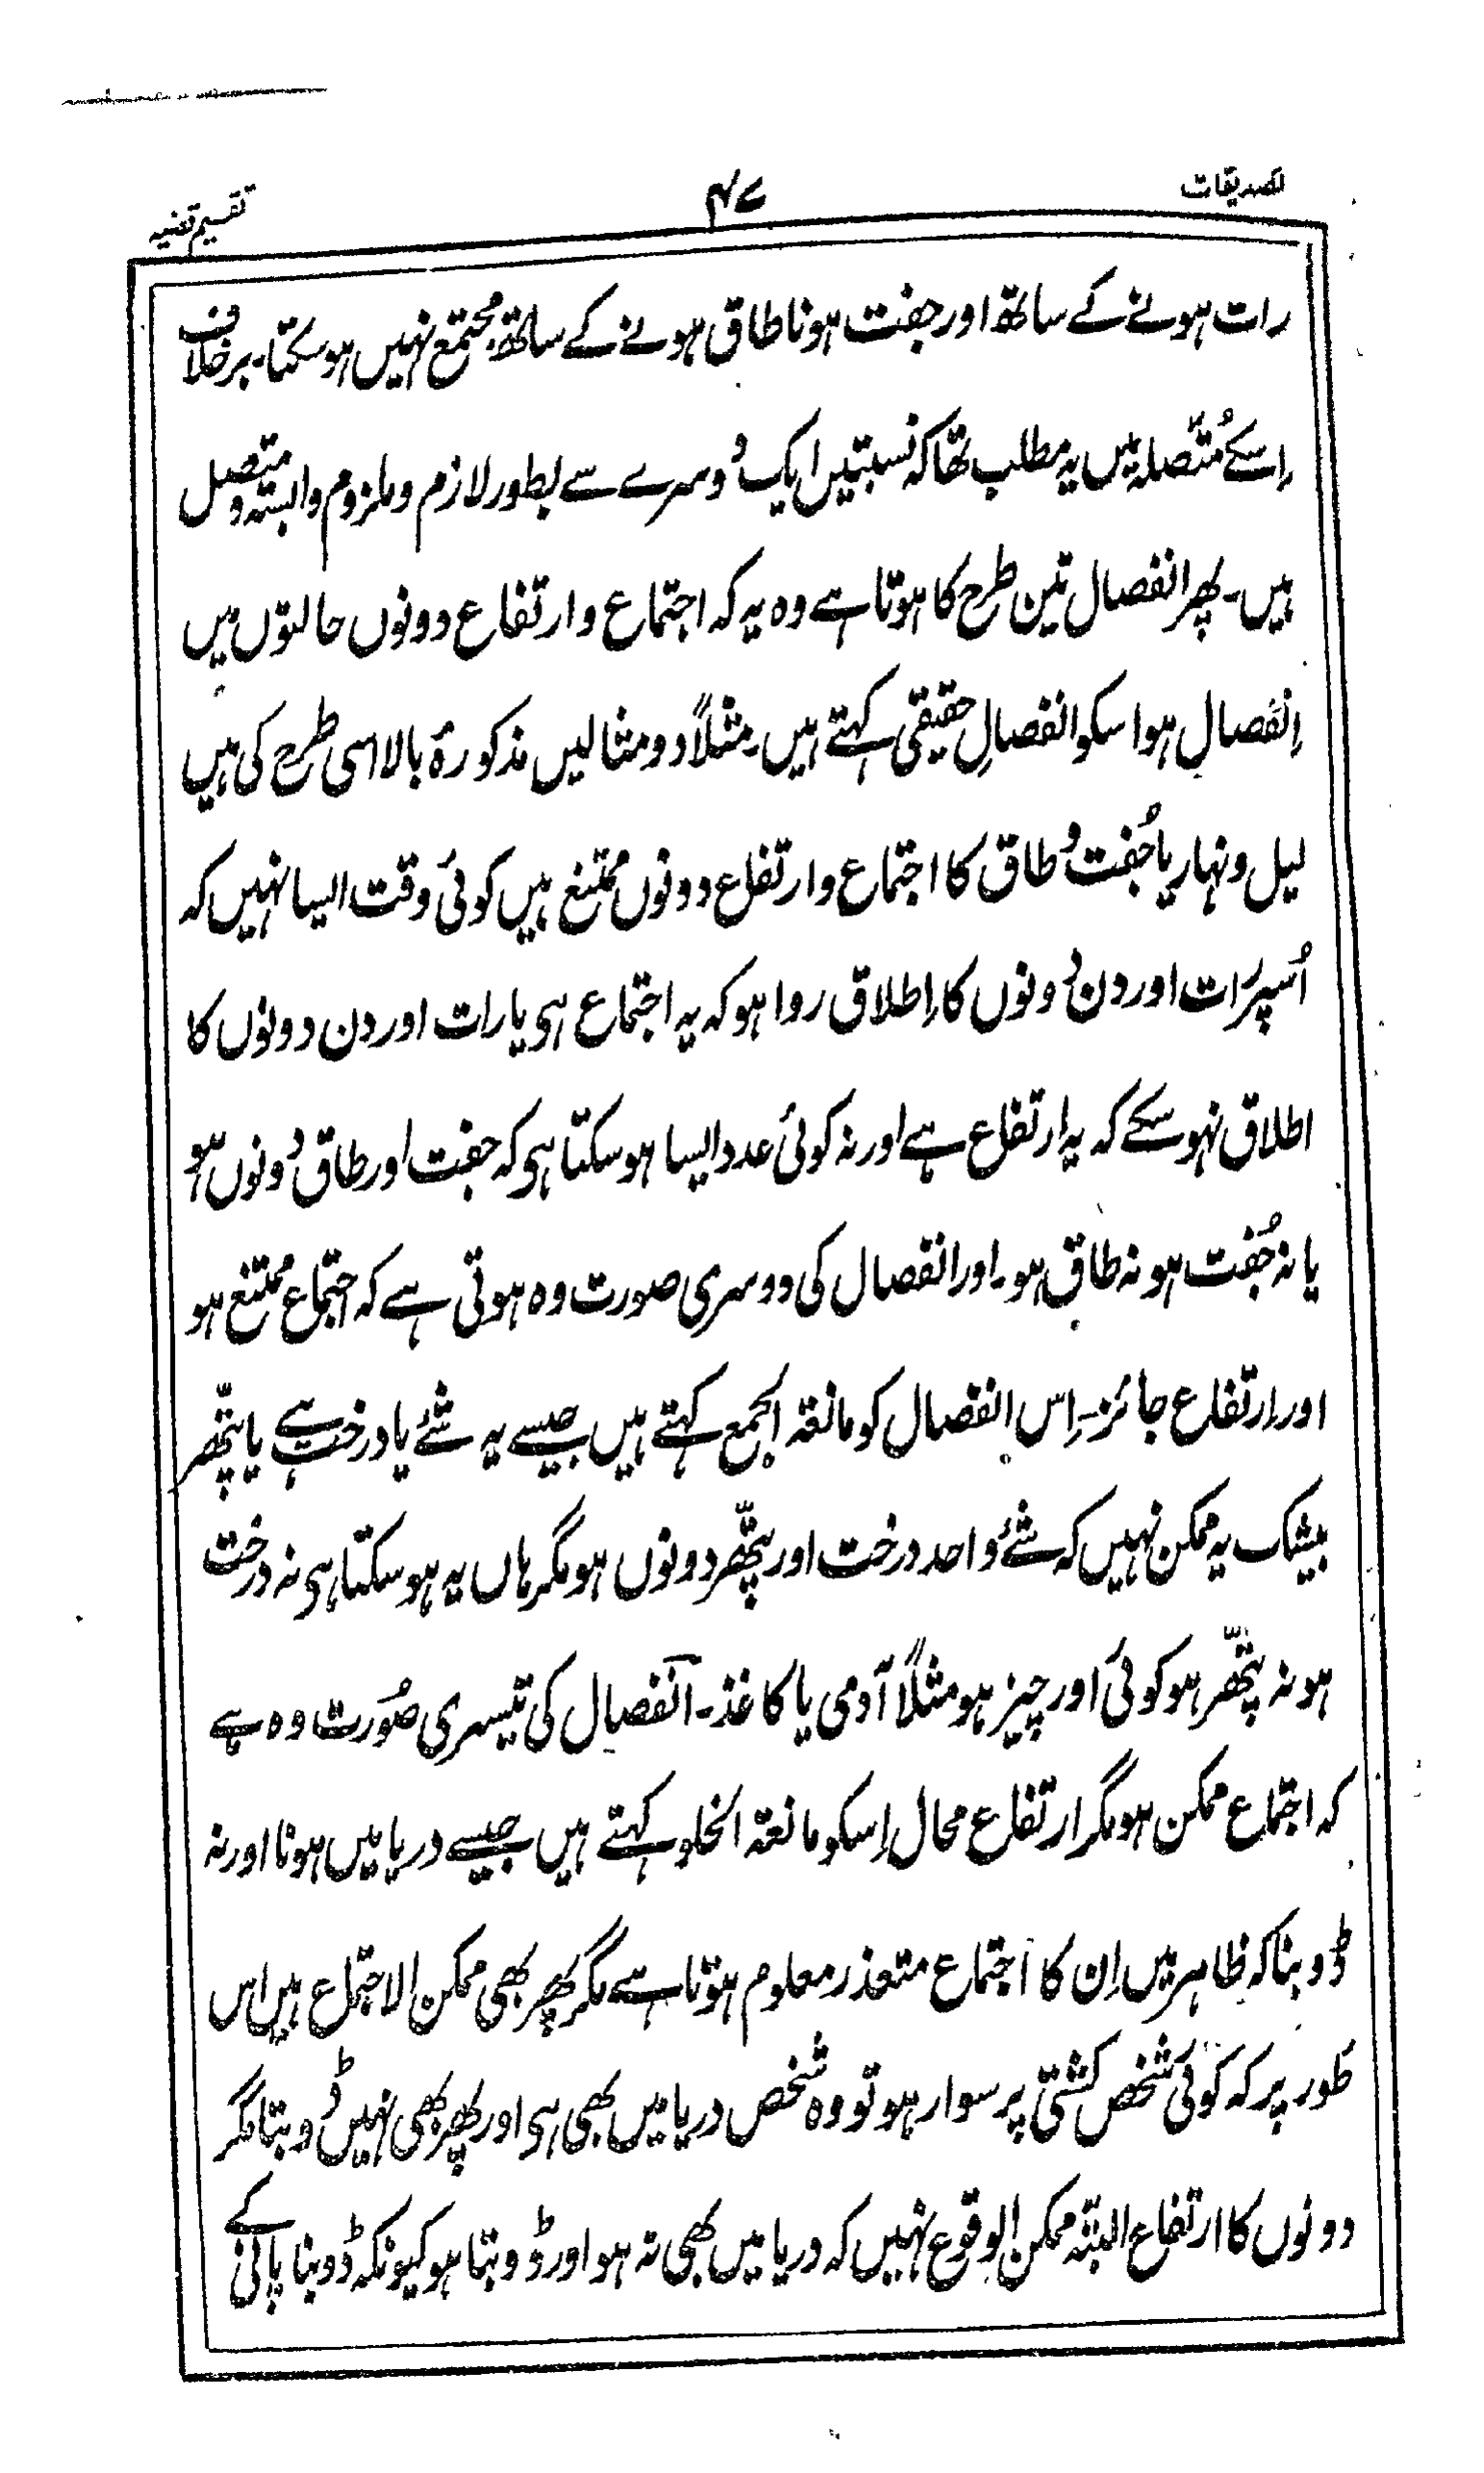 تصدیقات ۴۷ تقسیم قضیہ
رات ہونے کے ساتھ اور جفت ہونا طاق ہونے کے ساتھ مجتمع نہیں ہو سکتا۔ برخلاف
اِسکے مُتّصلہ میں یہ مطلب تھا کہ نسبتیں ایک دُوسرے سے بطور لازم وملزوم وابستہ و متصل
ہیں۔ پھر انفصال تین طرح کا ہوتا ہے وہ یہ کہ اجتماع و ارتفاع دونوں حالتوں میں
اِنفصال ہو اسکو انفصالِ حقیقی کہتے ہیں۔ مثلاً دو مثالیں مذکورۂ بالا اسی طرح کی ہیں
لیل و نہار یا جُفت و طاق کا اجتماع و ارتفاع دونوں ممتنع ہیں کوئی وقت ایسا نہیں کہ
اُسپر رَات اور دن دُونوں کا اِطلاق روا ہو کہ یہ اجتماع ہی یا رات اور دن دونوں کا
اطلاق نہو سکے کہ یہ اِرتفاع ہے اور نہ کوئی عدد ایسا ہو سکتا ہی کہ جفت اور طاق دُونوں ہو
یا نہ جُفت ہو نہ طاق ہو۔ اور انفصال کی دوسری صورت وہ ہوتی ہے کہ اجتماع ممتنع ہو
اور اِرتفاع جائز۔ اِس انفصال کو مانعۃ الجمع کہتے ہیں جیسے یہ شئے یا درخت ہے یا پتّھر
بیشک یہ ممکن نہیں کہ شئے واحد درخت اور پتّھر دونوں ہو مگر ہاں یہ ہو سکتا ہی نہ درخت
ہو نہ پتّھر ہو کوئی اور چیز ہو مثلاً آدمی یا کاغذ۔ انفصال کی تیسری صُورت وہ ہے
کہ اجتماع ممکن ہو مگر ارتفاع محال اِسکو مانعۃ الخلو کہتے ہیں جیسے دریا میں ہونا اور نہ
ڈوبنا کہ ظاہر میں اِن کا اجتماع متعذر معلوم ہوتا ہے مگر پھر بھی ممکن الاجتماع ہیں اس
طور پر کہ کوئی شخص کشتی پر سوار ہو تو وہ شخص دریا میں بھی ہی اور پھر بھی نہیں ڈوبتا مگر
دونوں کا ارتفاع البتّہ ممکن الوقوع نہیں کہ دریا میں بھی نہ ہو اور ڈوبتا ہو کیونکہ ڈوبنا پانی کے